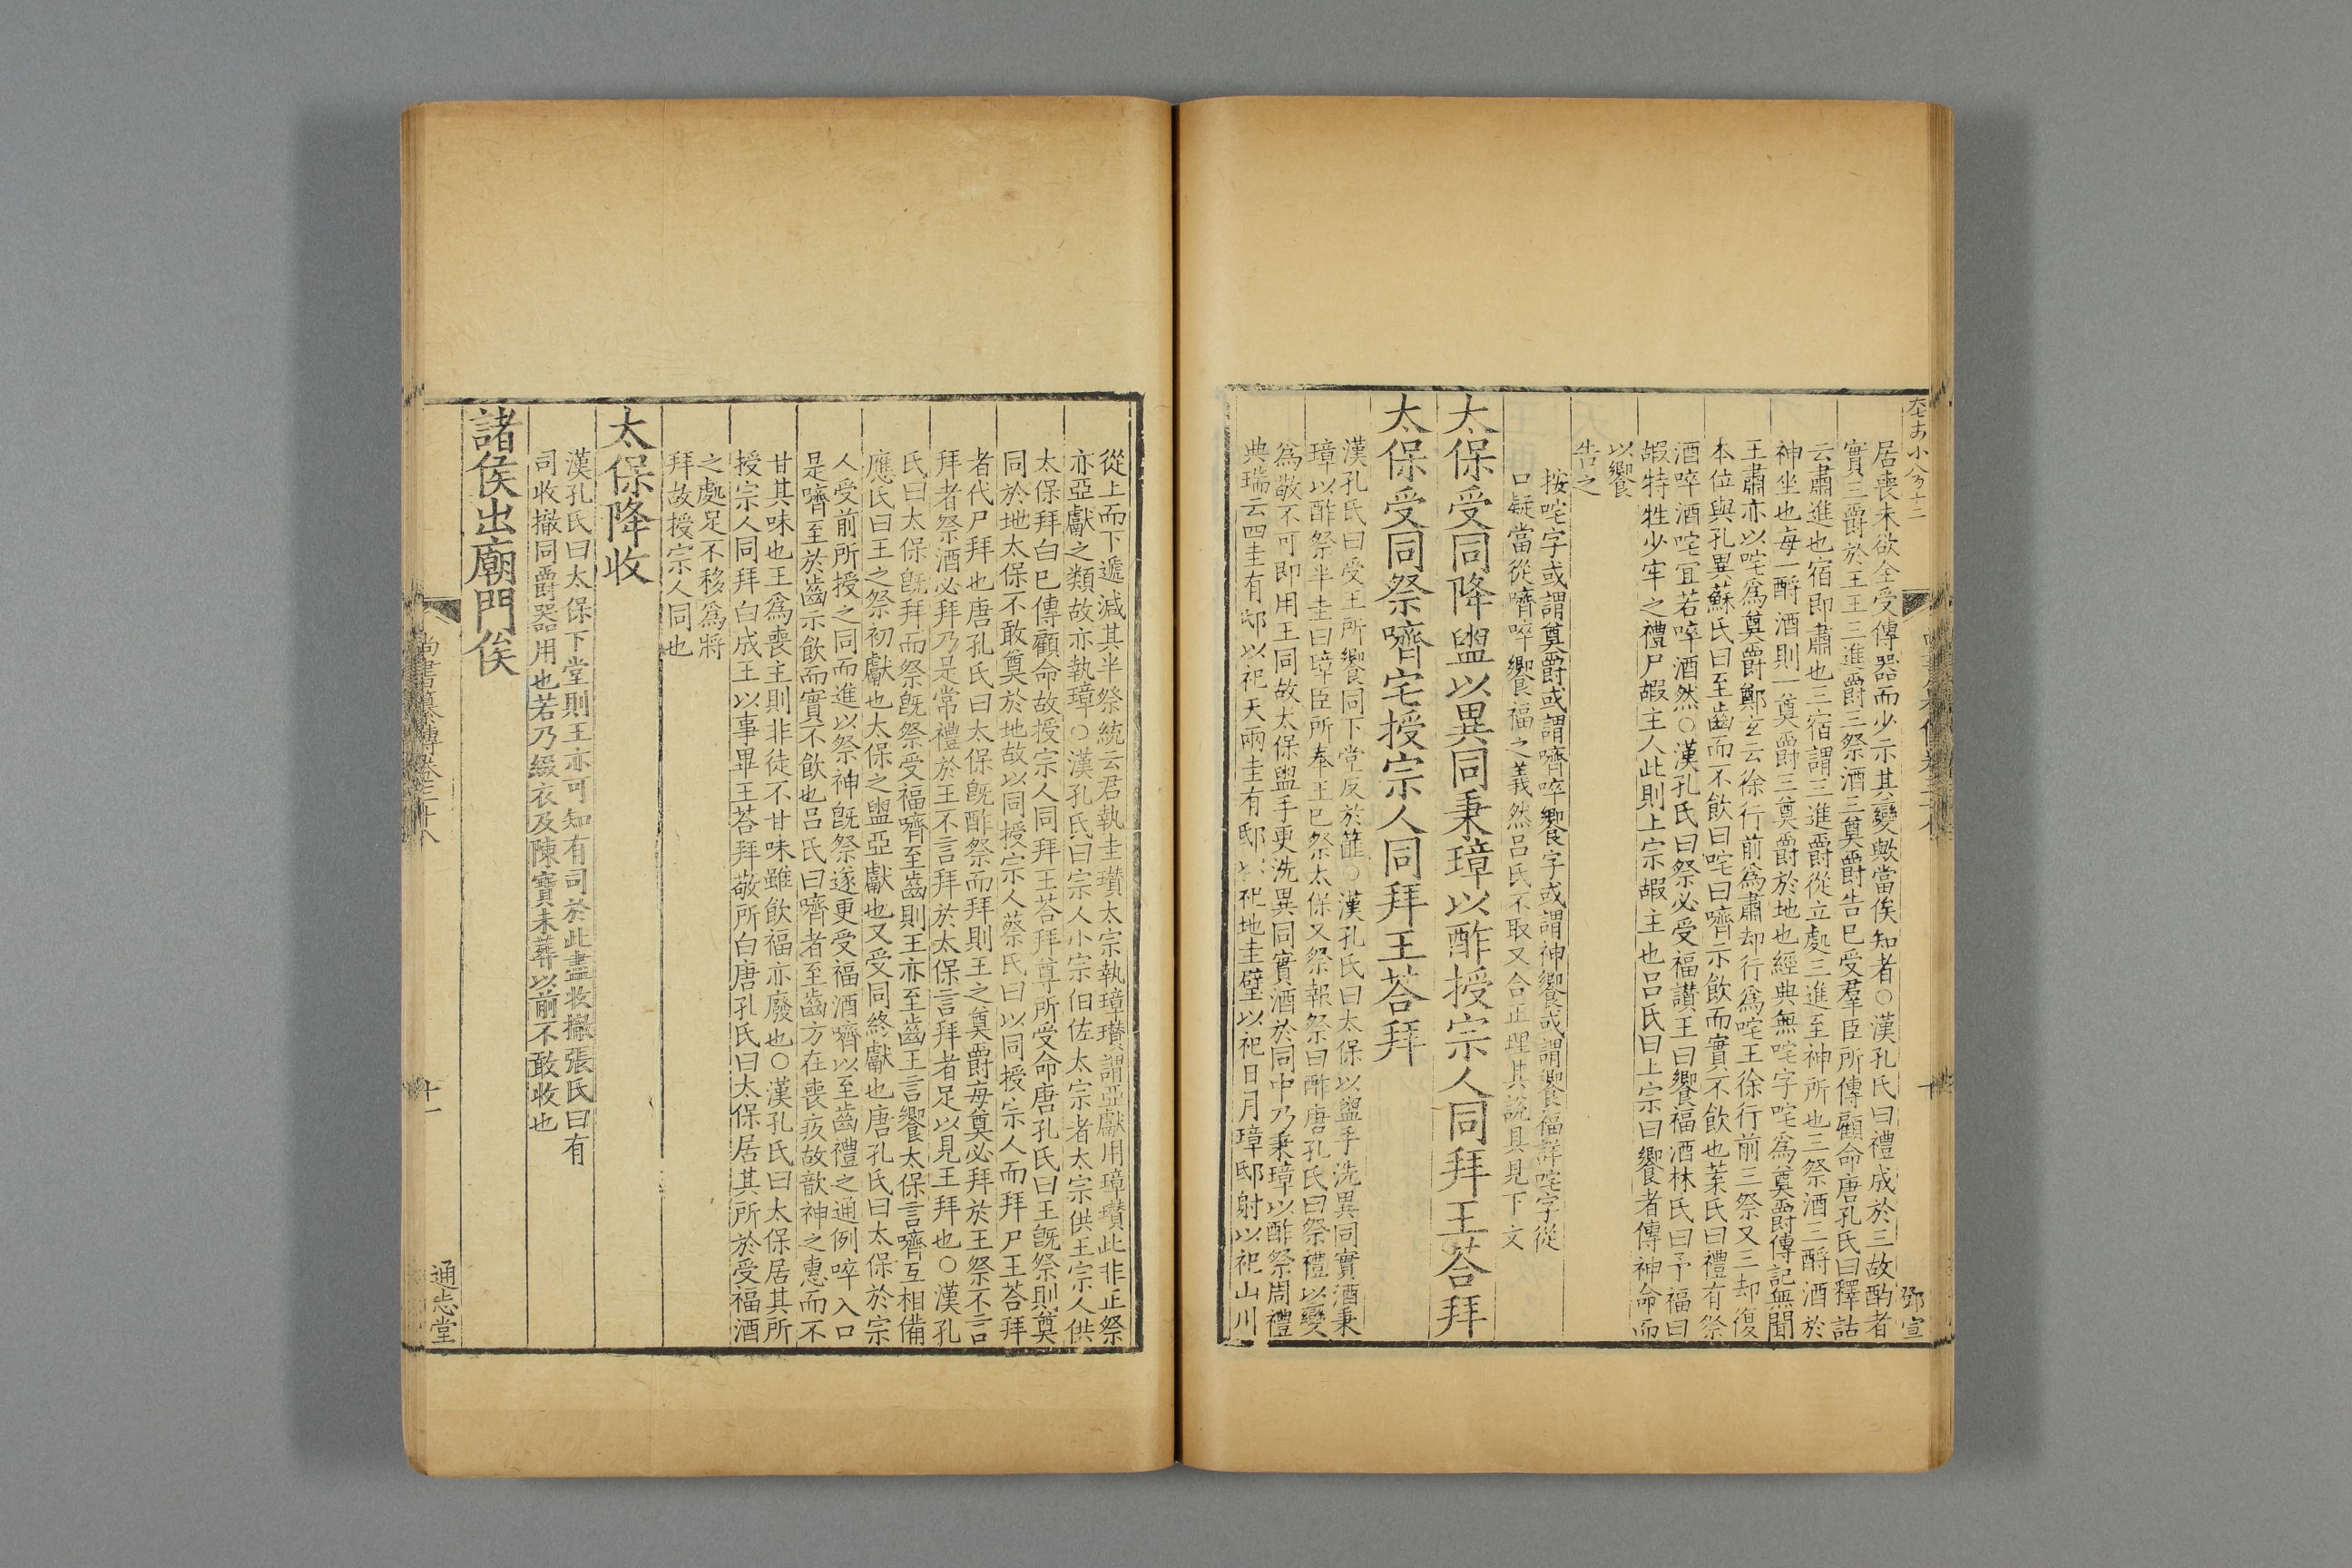 居喪未欲全受傳器而少示其變歟當俟知者○漢孔氏曰禮成於三故酌者
實三爵於王王三進爵三祭酒三奠爵告已受羣臣所傳顧命唐孔氏曰釋詁
云肅進也宿即肅也三宿謂三進爵從立處三進至神所也三祭酒三酹酒於
神坐也每一酹酒則一奠爵三奠爵於地也經典無咤字咤爲奠爵傳記無聞
王肅亦以咤爲奠爵鄭玄云徐行前爲肅却行爲咤王徐行前三祭又三却復
本位與孔異蘇氏曰至齒而不飲曰咤曰嚌示飲而實不飲也葉氏曰禮有祭
酒啐酒咤宜若啐酒然○漢孔氏曰祭必受福讃王曰饗福酒林氏曰予福曰
嘏特牲少牢之禮尸嘏主人此則上宗嘏主也呂氏曰上宗曰饗者傳神命而
以饗
告之
按咤字或謂奠爵或謂嚌啐饗字或謂神饗或謂饗福詳咤字從
口疑當從嚌啐饗福之義然呂氏不取又合正理其說具見下文
太保受同降盥以異同秉璋以酢授宗人同拜王荅拜
太保受同祭嚌宅授宗人同拜王荅拜
漢孔氏曰受王所饗同下堂反於篚○漢孔氏曰太保以盥手洗異同實酒秉
璋以酢祭半圭曰璋臣所奉王已祭太保又祭報祭曰酢唐孔氏曰祭禮以變
爲敬不可即用王同故太保盥手更洗異同實酒於同中乃秉璋以酢祭周禮
典瑞云四圭有邸以祀天兩圭有邸以祀地圭璧以祀日月璋邸射以祀山川
鄧宣
十
從上而下遞減其半祭統云君執圭瓚太宗執璋瓚謂亞獻用璋瓚此非正祭
亦亞獻之類故亦執璋○漢孔氏曰宗人小宗伯佐太宗者太宗供王宗人供
太保拜白已傳顧命故授宗人同拜王荅拜尊所受命唐孔氏曰王旣祭則奠
同於地太保不敢奠於地故以同授宗人蔡氏曰以同授宗人而拜尸王荅拜
者代尸拜也唐孔氏曰太保旣酢祭而拜則王之奠爵每奠必拜於王祭不言
拜者祭酒必拜乃是常禮於王不言拜於太保言拜者足以見王拜也○漢孔
氏曰太保旣拜而祭旣祭受福嚌至齒則王亦至齒王言饗太保言嚌互相備
應氏曰王之祭初獻也太保之盥亞獻也又受同終獻也唐孔氏曰太保於宗
人受前所授之同而進以祭神旣祭遂更受福酒嚌以至齒禮之通例啐入口
是嚌至於齒示飲而實不飲也呂氏曰嚌者至齒方在喪疚故歆神之惠而不
甘其味也王爲喪主則非徒不甘味雖飲福亦廢也○漢孔氏曰太保居其所
授宗人同拜白成王以事畢王荅拜敬所白唐孔氏曰太保居其所於受福酒
之處足不移爲將
拜故授宗人同也
太保降收
漢孔氏曰太保下堂則王亦可知有司於此盡收撤張氏曰有
司收撤同爵器用也若乃綴衣及陳寶未葬以前不敢收也
諸侯出廟門俟
尚書纂傳卷三十八
十一
通志堂